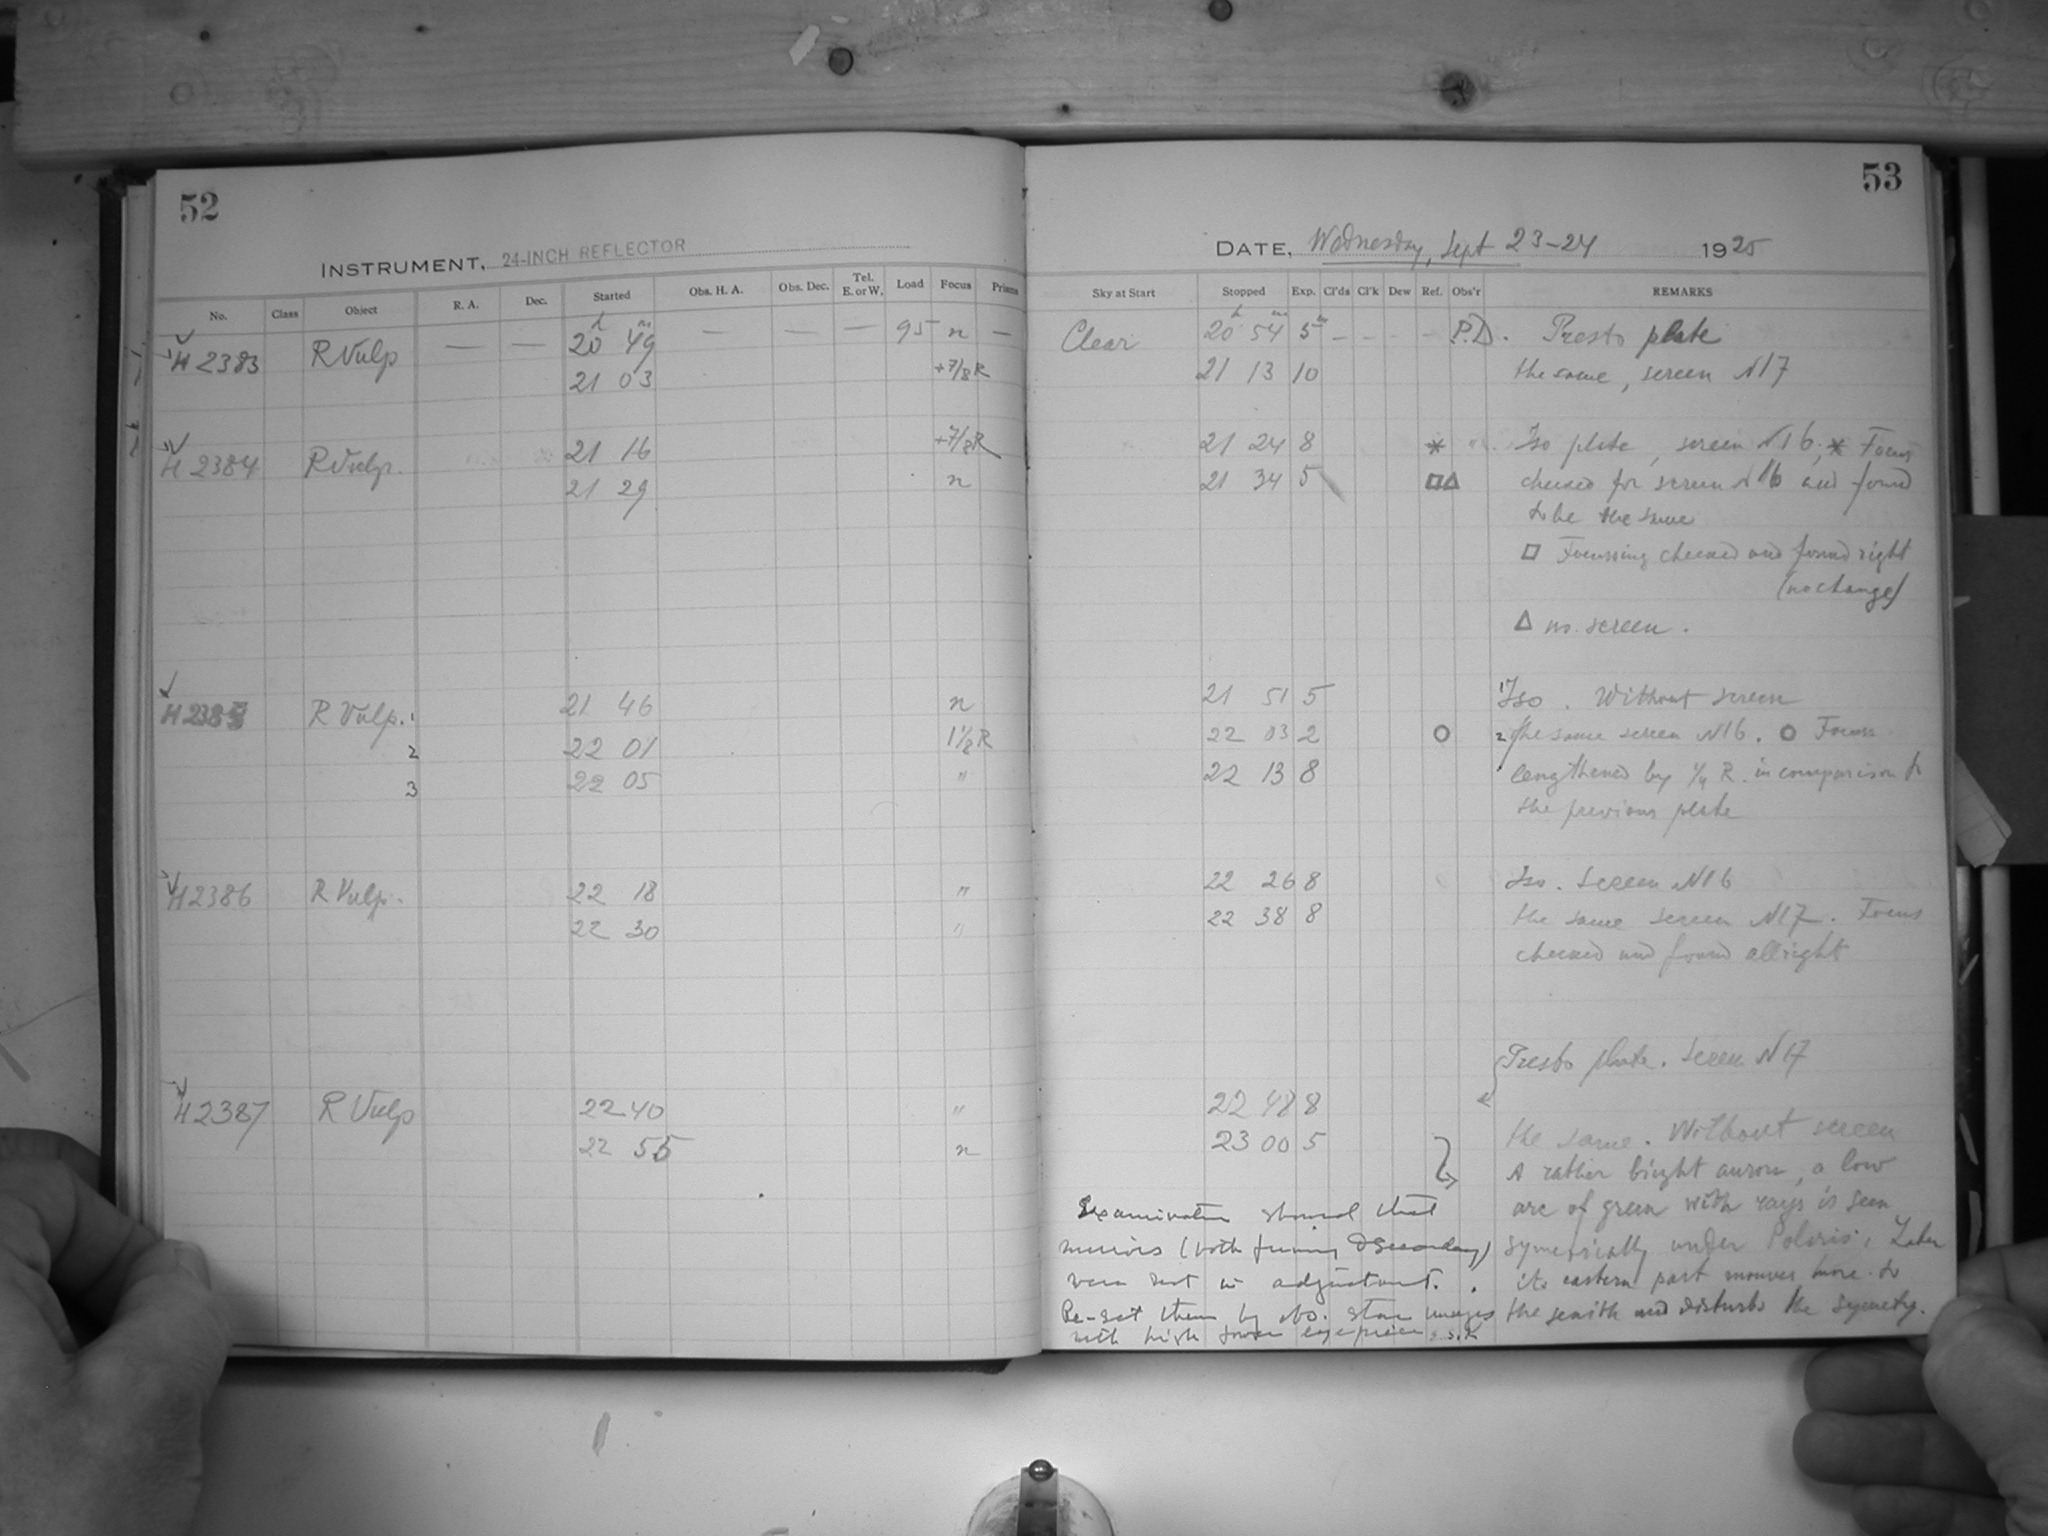 52
INSTRUMENT, 24-INCH REFLECTOR
No. Class Object R. A. Dec. Started Obs. H. A. Obs. Dec. Tel. E. or W. Load Focus Prisms
H 2383 R Vulp — — 20h 49m — — — 95 n —
21 03 +7/8 R
H 2384 R Vulp. 21 16 +7/8 R
21 29 n
H 2385 R Vulp. 1 21 46 n
2 22 01 1 1/8 R
3 22 05 "
H 2386 R Vulp. 22 18 "
22 30 "
H 2387 R Vulp 22 40 "
22 55 n
53
DATE, Wednesday, Sept 23-24 1925
Sky at Start Stopped Exp. Cl'ds Cl'k Dew Ref. Obs'r REMARKS
Clear 20h 54m 5m — - - - P.D. Presto plate
21 13 10 the same, screen N17
21 24 8 * Iso plate, screen N16, * Focus
21 34 5 □△ checked for screen N16 and found
to be the same
□ Focussing checked and found right
(no change)
△ no screen.
21 51 5 1 Iso. Without screen
22 03 2 O 2 the same screen N16. O Focus
22 13 8 lengthened by 1/4 R. in comparison to
the previous plate
22 26 8 Iso. Screen N16
22 38 8 the same screen N17. Focus
checked and found allright
Presto plate. Screen N17
22 48 8
23 00 5 the same. Without screen
A rather bright auror, a low
arc of green with rays is seen
symetrically under Polaris. Later
its eastern part mouves more to
the zenith and disturbs the symetry.
Examination showed that
mirrors (both primary & Secondary)
were not in adjustment.
Re-set them by obs. star images
with high power eyepiece